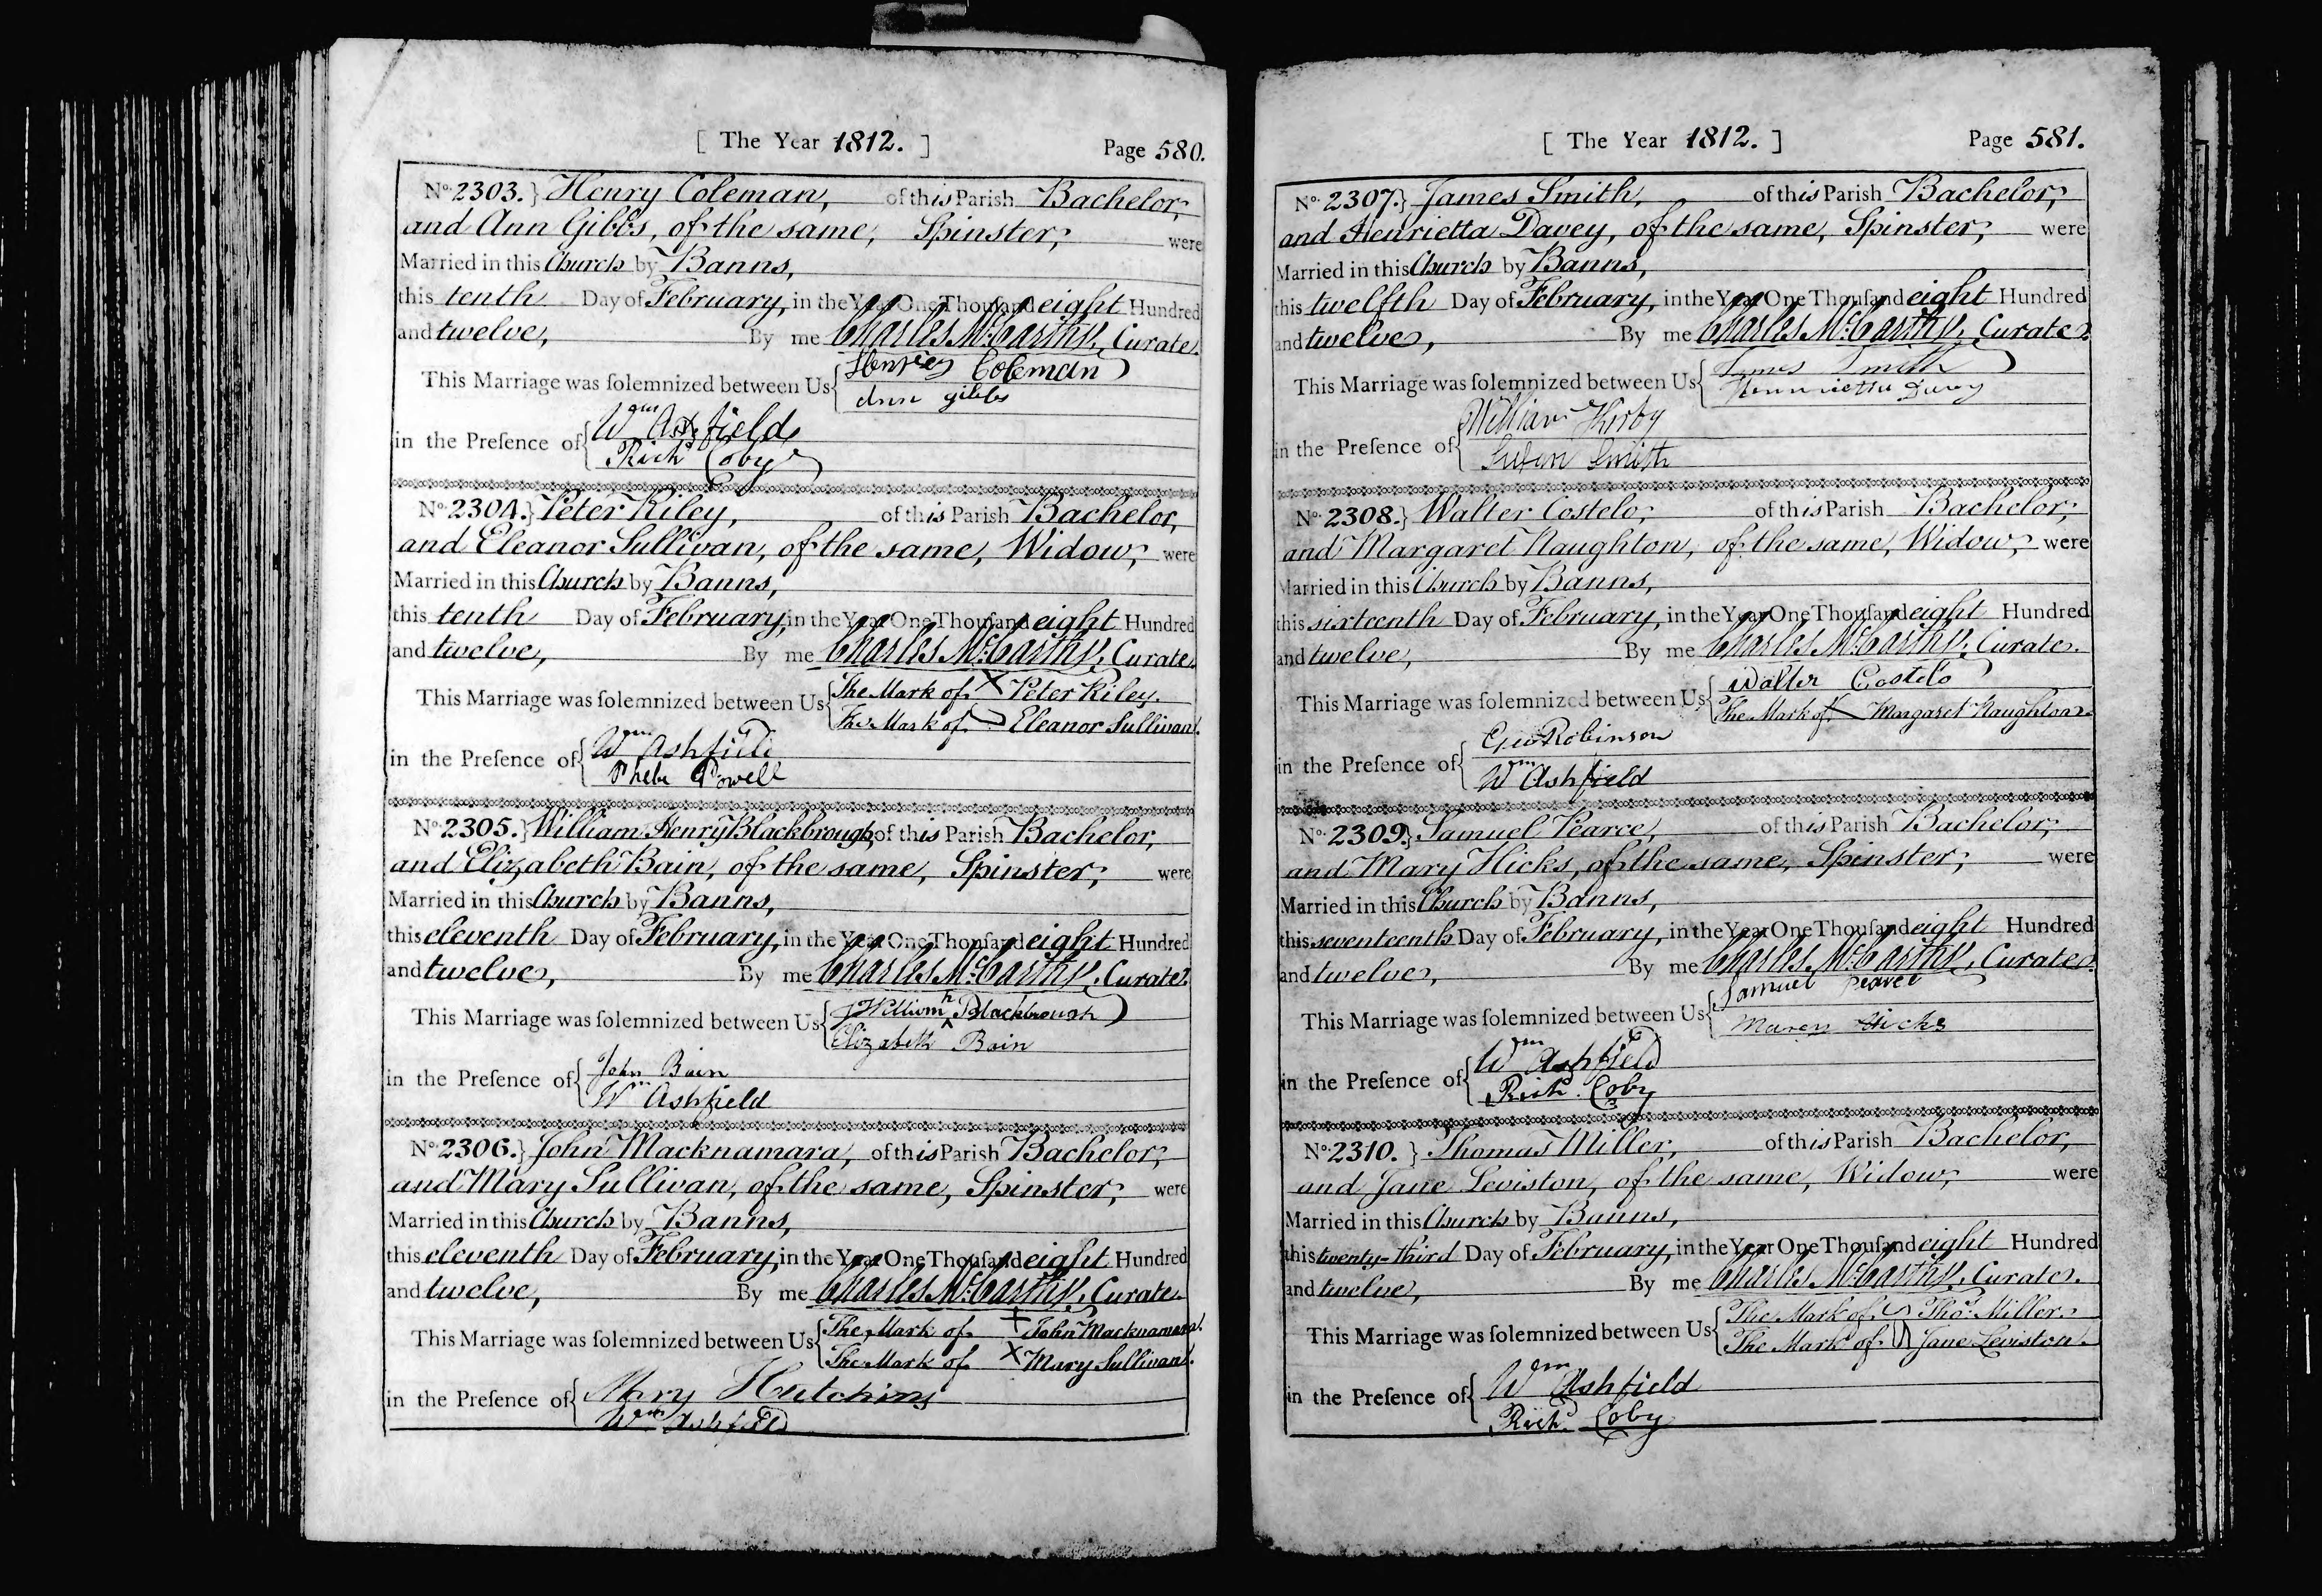 [ The Year 1812. ] Page 580.
No. 2303. } Henry Coleman, of this Parish Bachelor,
and Ann Gibbs, of the same, Spinster; were
Married in this Church by Banns,
this tenth Day of February, in the Year One Thouſand eight Hundred
and twelve, By me Charles McCarthy, Curate.
This Marriage was ſolemnized between Us { Henry Coleman
Ann gibbs
in the Preſence of { Wm Ashfield
Richd Coby
No. 2304. } Peter Riley, of this Parish Bachelor,
and Eleanor Sullivan, of the same, Widow; were
Married in this Church by Banns,
this tenth Day of February, in the Year One Thouſand eight Hundred
and twelve, By me Charles McCarthy, Curate.
This Marriage was ſolemnized between Us { The Mark of X Peter Riley.
The Mark of Eleanor Sullivan.
in the Preſence of { Wm Ashfield
Phebe Powell
No. 2305. } William Henry Blackbrough, of this Parish Bachelor,
and Elizabeth Bain, of the same, Spinster; were
Married in this Church by Banns,
this eleventh Day of February, in the Year One Thouſand eight Hundred
and twelve, By me Charles McCarthy, Curate.
This Marriage was ſolemnized between Us { William h Blackbrough
Elizabeth Bain
in the Preſence of { John Bain
Wm Ashfield
No. 2306. } John Macknamara, of this Parish Bachelor;
and Mary Sullivan, of the same, Spinster; were
Married in this Church by Banns,
this eleventh Day of February, in the Year One Thouſand eight Hundred
and twelve, By me Charles McCarthy, Curate.
This Marriage was ſolemnized between Us { The Mark of + John Macknamara.
The Mark of X Mary Sullivan.
in the Preſence of { Mary Hutchins
Wm Ashfield
[ The Year 1812. ] Page 581.
No. 2307. } James Smith, of this Parish Bachelor;
and Henrietta Davey, of the same, Spinster; were
Married in this Church by Banns,
this twelfth Day of February, in the Year One Thouſand eight Hundred
and twelve, By me Charles McCarthy, Curate.
This Marriage was ſolemnized between Us { James Smith
Henrietta Davy
in the Preſence of { William Kirby
Suſan Smith
No. 2308. } Walter Costelo; of this Parish Bachelor;
and Margaret Naughton, of the same, Widow; were
Married in this Church by Banns,
this sixteenth Day of February, in the Year One Thouſand eight Hundred
and twelve, By me Charles McCarthy, Curate.
This Marriage was ſolemnized between Us { Walter Costelo
The Mark of X Margaret Naughton.
in the Preſence of { Geo Robinson
Wm Ashfield
No. 2309. } Samuel Pearce, of this Parish Bachelor;
and Mary Hicks, of the same, Spinster; were
Married in this Church by Banns,
this seventeenth Day of February, in the Year One Thouſand eight Hundred
and twelve, By me Charles McCarthy, Curate.
This Marriage was ſolemnized between Us { Samuel Pearce
Marey Hicks
in the Preſence of { Wm Ashfield
Richd. Coby
No. 2310. } Thomas Miller, of this Parish Bachelor,
and Jane Leviston, of the same, Widow; were
Married in this Church by Banns,
this twenty-third Day of February, in the Year One Thouſand eight Hundred
and twelve, By me Charles McCarthy, Curate.
This Marriage was ſolemnized between Us { The Mark of Thos. Miller.
The Mark of Jane Leviston.
in the Preſence of { Wm Ashfield
Richd. Coby